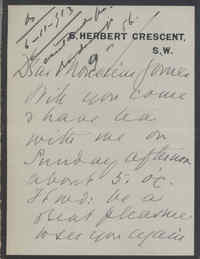 5, HERBERT CRESCENT,
S.W.
Will you come
& have tea
with me on
Sunday afternoon
about 5. o'c.
It wd: be a
great pleasure
to see you again